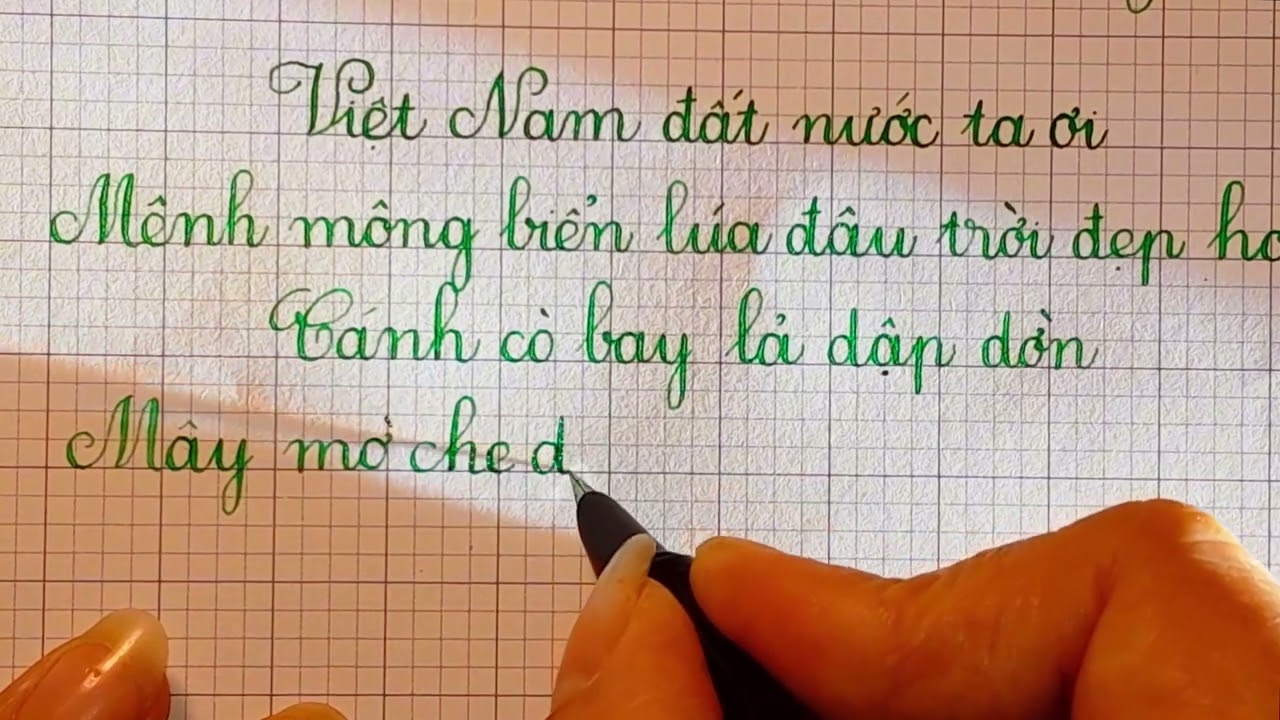 Việt Nam đất nước ta ơi
Mênh mông biển lúa đâu trời đẹp
Cánh cò bay lả dập dờn
Mây mờ che d